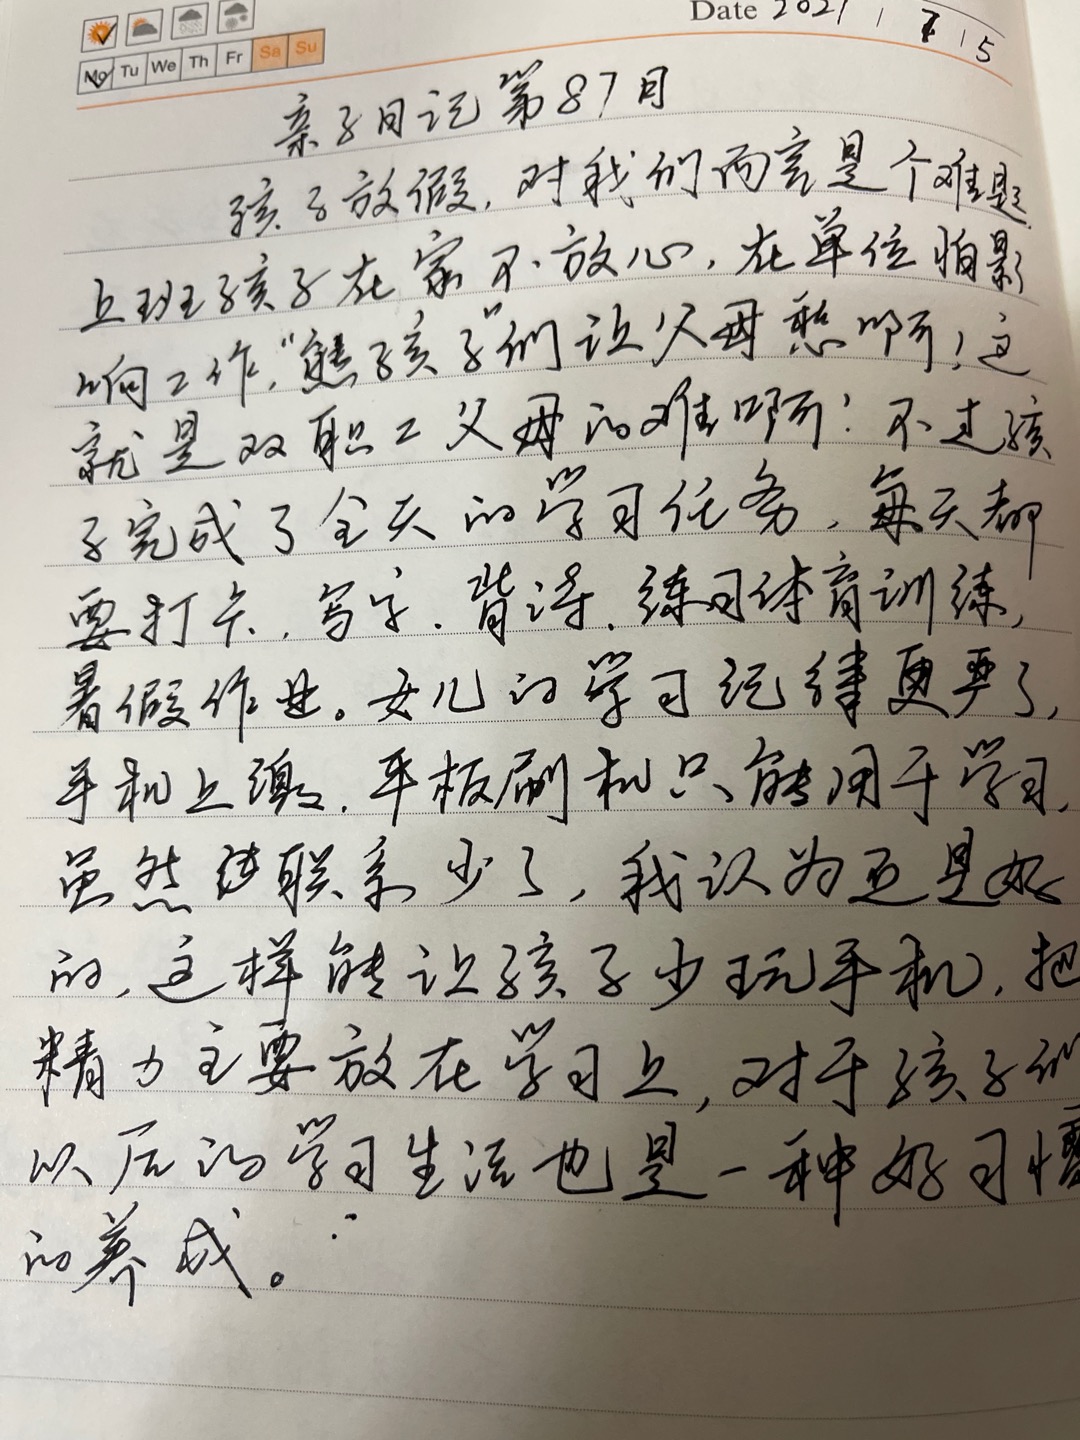 Date 2021 | 7 | 5
Mo Tu We Th Fr Sa Su
亲子日记第87日
孩子放假,对我们而言是个难题.
上班孩子在家不放心,在单位怕影
响工作,"熊孩子"们让父母愁啊!这
就是双职工父母的难啊!不过孩
子完成了全天的学习任务,每天都
要打卡,写字.背诗.练习体育训练,
暑假作业。女儿的学习纪律更严了,
手机上缴.平板刷机只能用于学习.
虽然联系少了,我认为还是好
的,这样能让孩子少玩手机,把
精力主要放在学习上,对于孩子们
以后的学习生活也是一种好习惯
的养成。